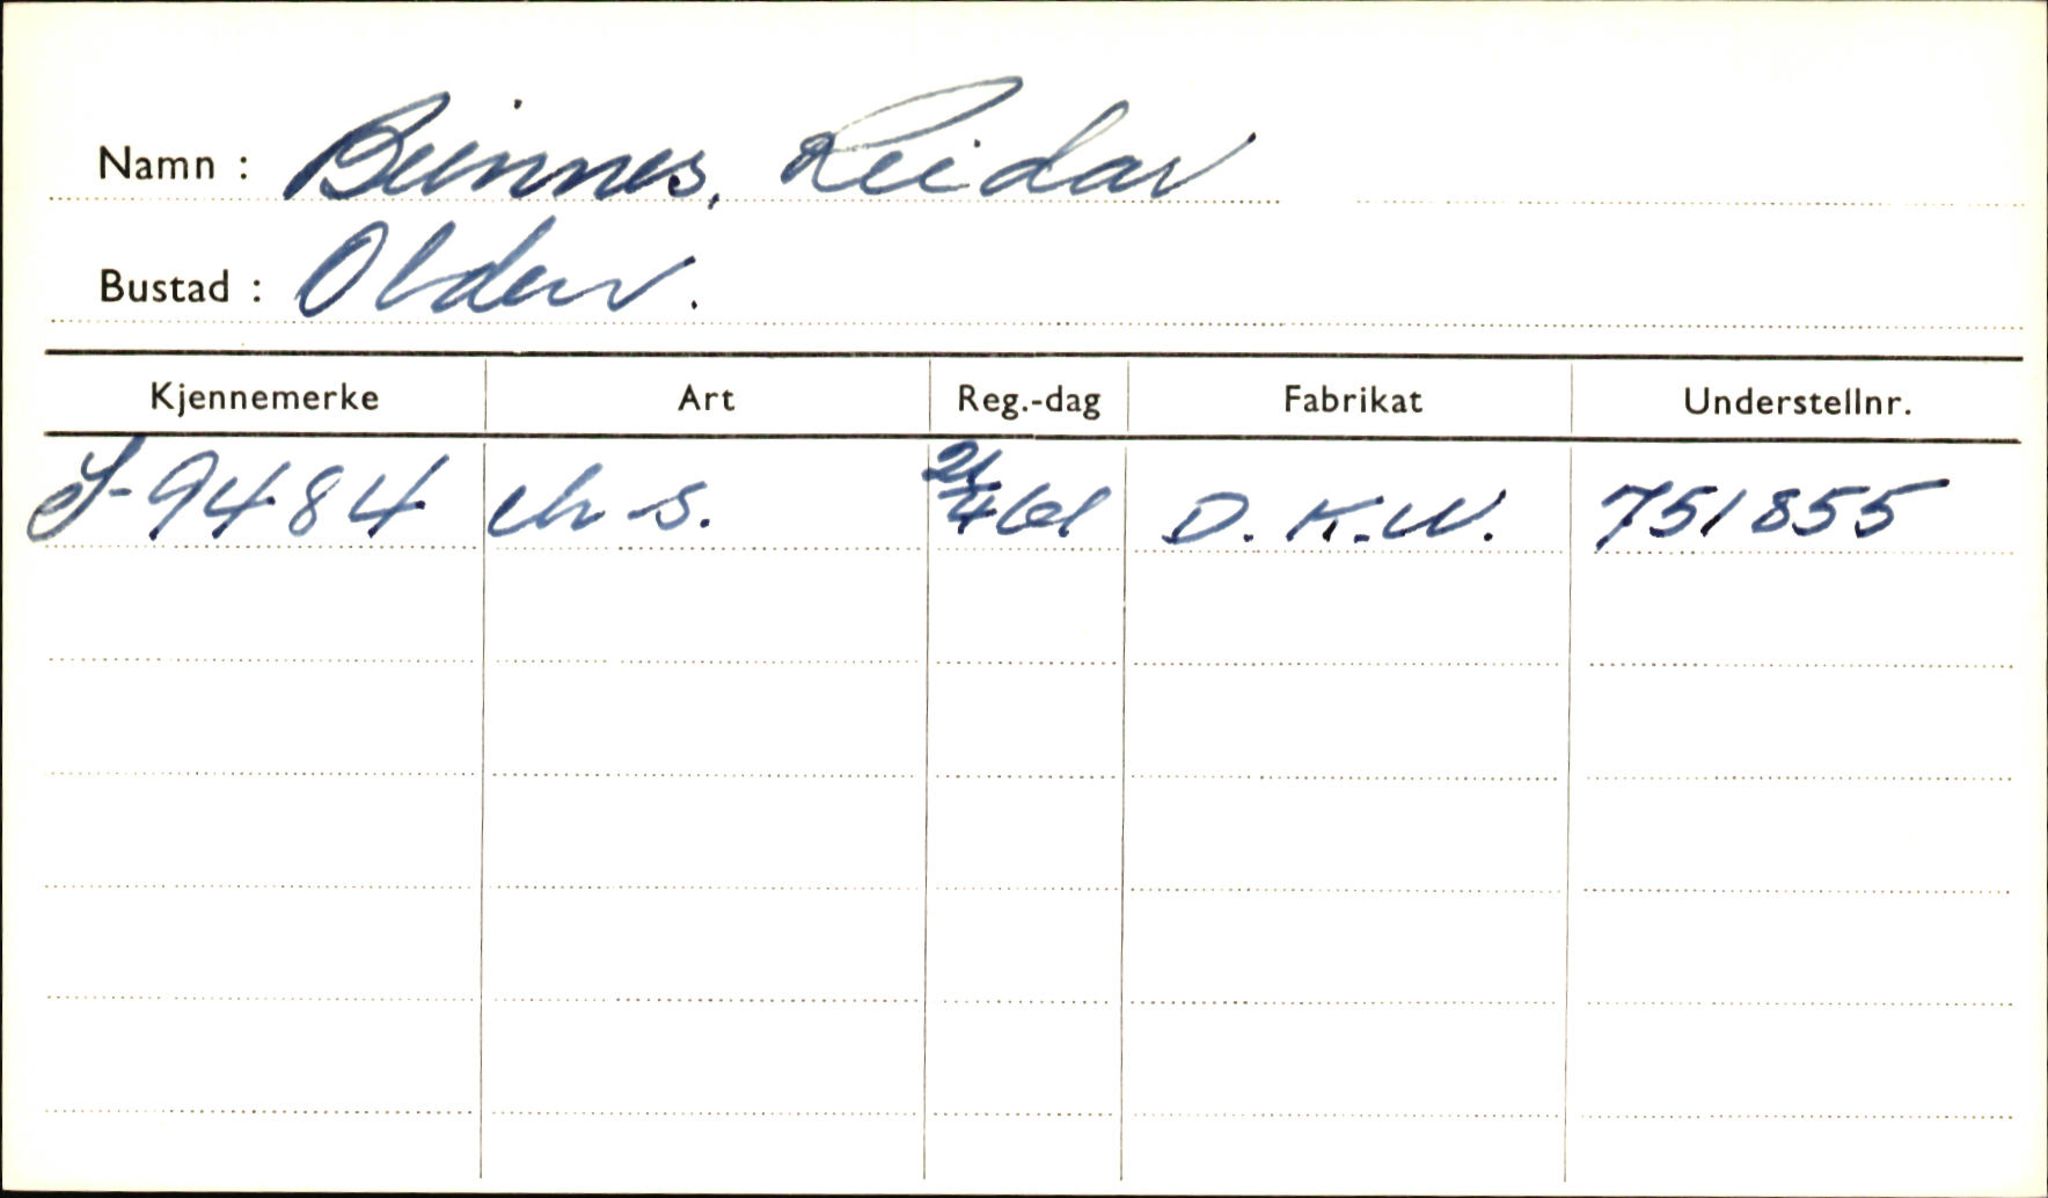 Namn : Beinnes, Reidar
Bustad : Olden.
Kjennemerke Art Reg.-dag Fabrikat Understellnr.
S-9484 s. D.K.W. 751855